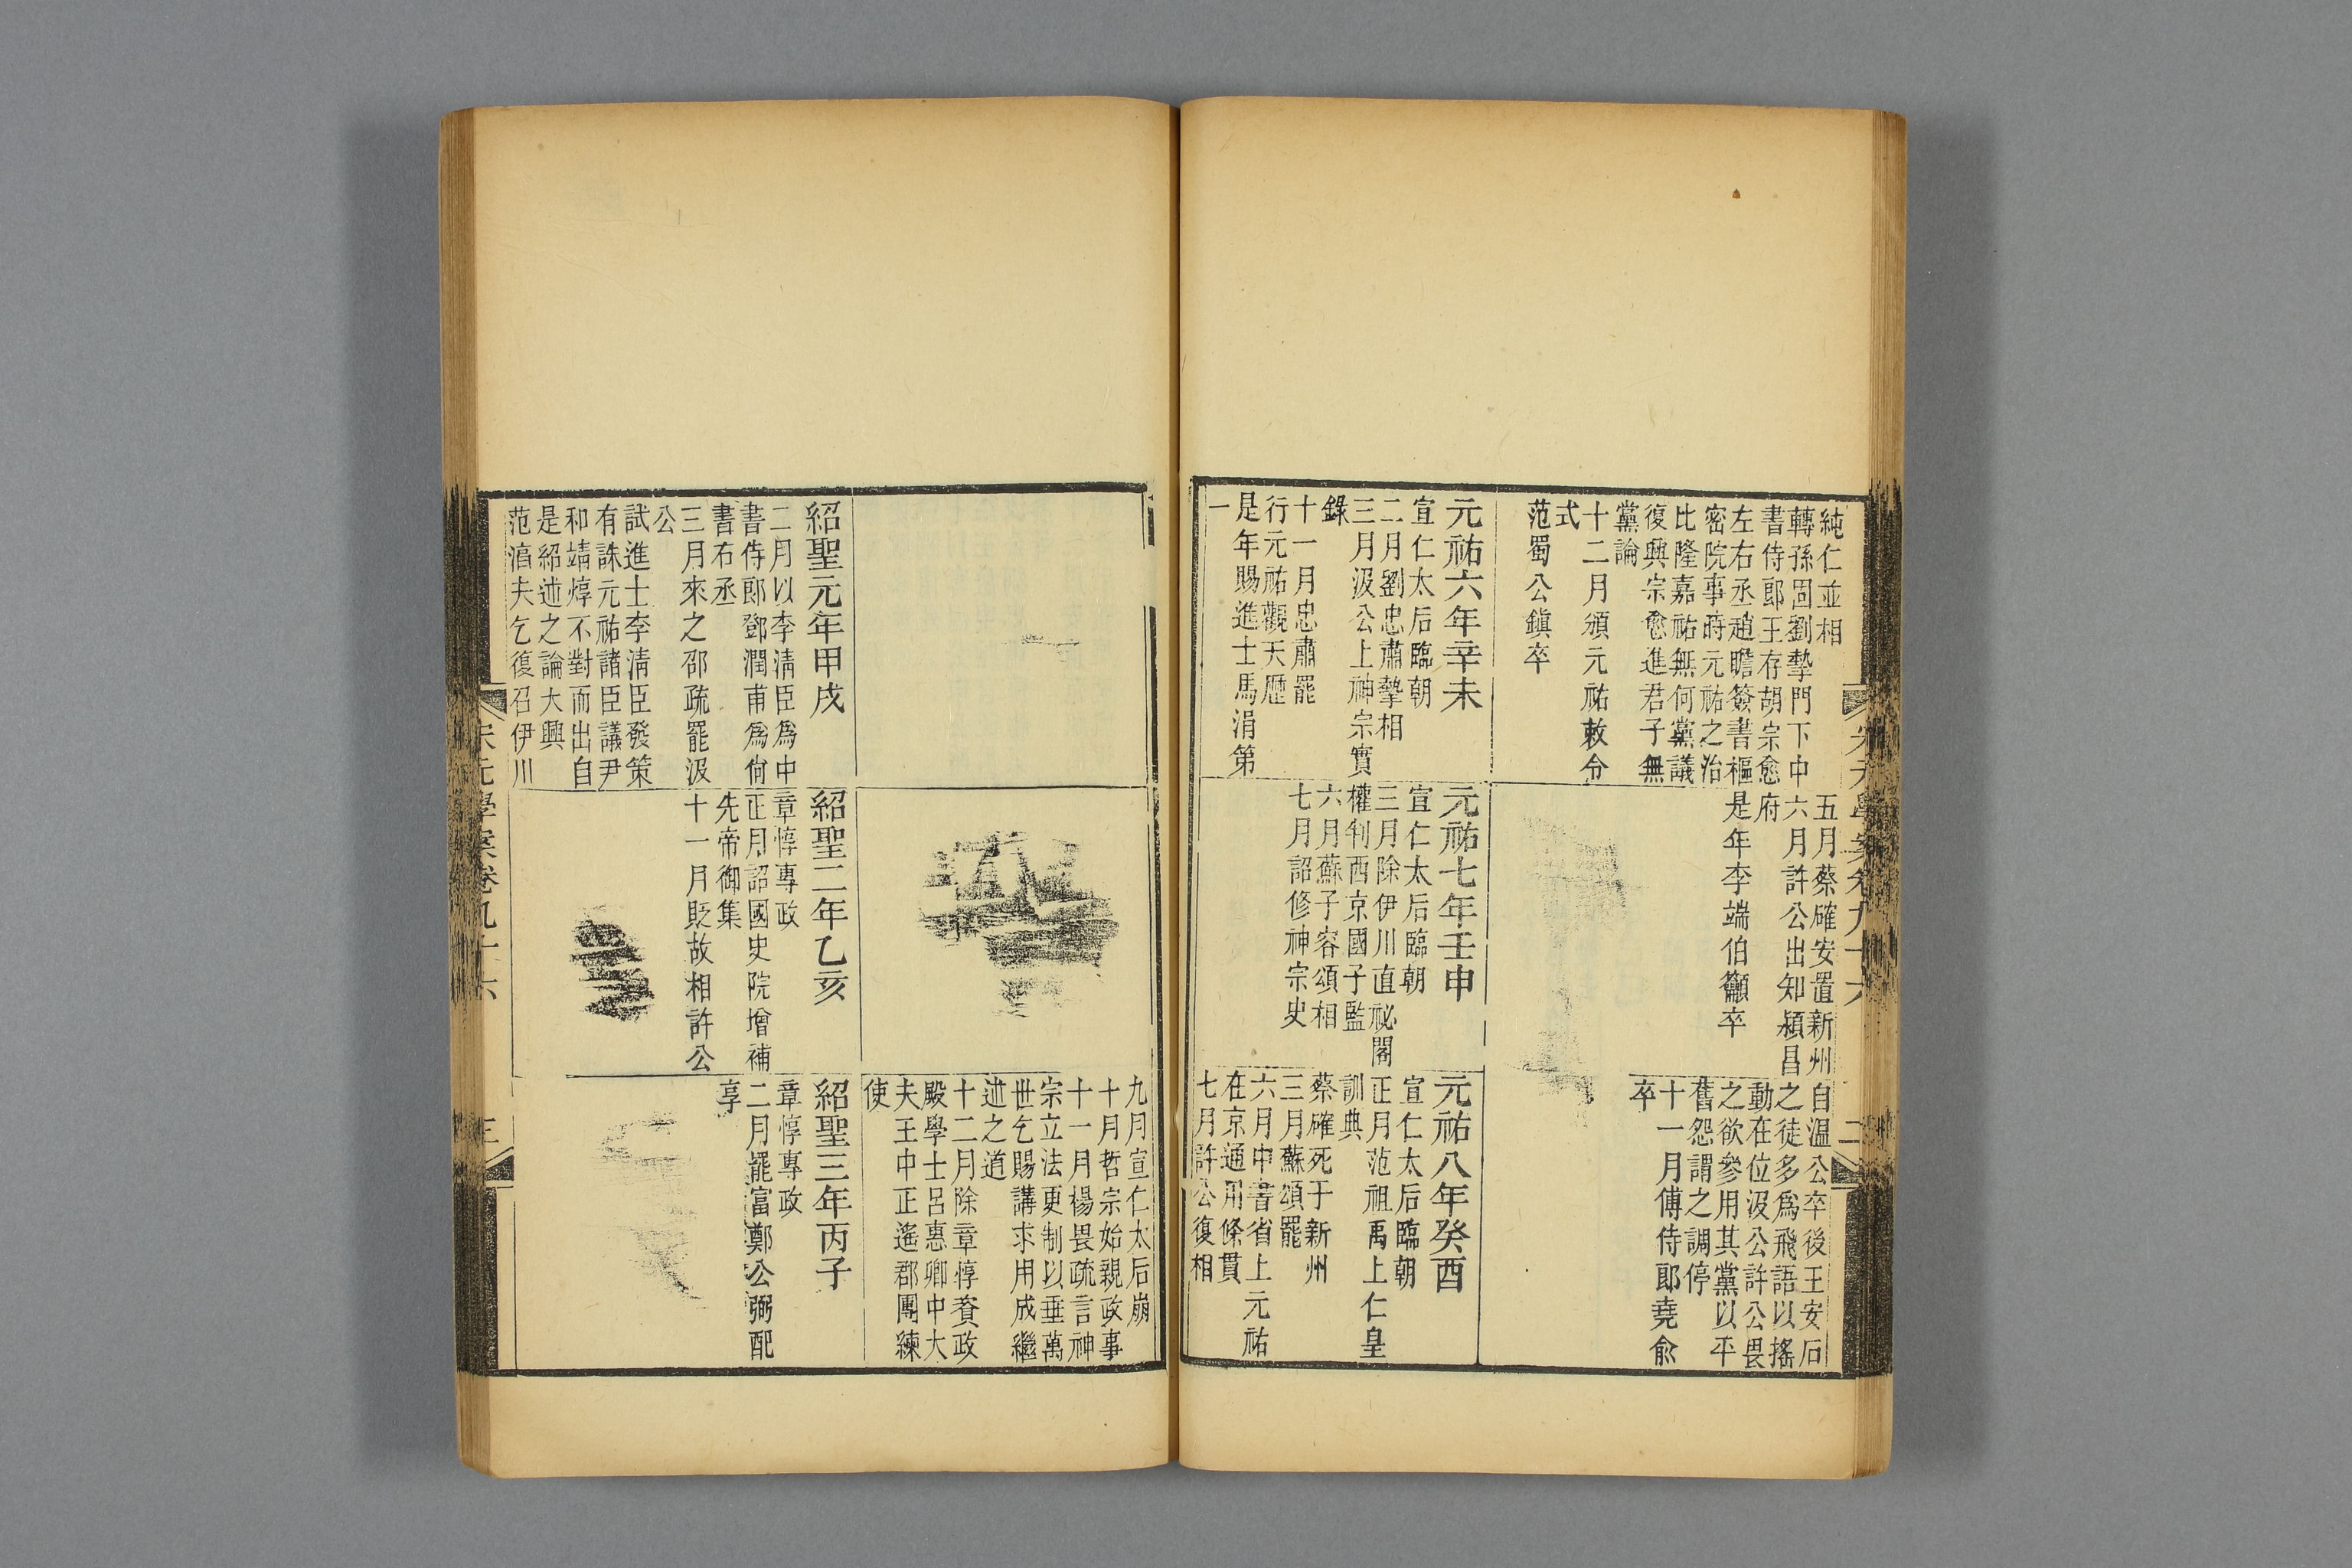 純仁並相
轉孫固劉摯門下中
書侍郎王存胡宗愈
左右丞趙瞻簽書樞
密院事時元祐之治
比隆嘉祐無何黨議
復興宗愈進君子無
黨論
十二月頒元祐敕令
式
范蜀公鎮卒
五月蔡確安置新州
六月許公出知潁昌
府
是年李端伯籲卒
自溫公卒後王安石
之徒多爲飛語以搖
動在位汲公許公畏
之欲參用其黨以平
舊怨謂之調停
十一月傅侍郎堯俞
卒
元祐六年辛未
宣仁太后臨朝
二月劉忠肅摯相
三月汲公上神宗實
錄
十一月忠肅罷
行元祐觀天歷
是年賜進士馬涓第
一
元祐七年壬申
宣仁太后臨朝
三月除伊川直祕閣
權判西京國子監
六月蘇子容頌相
七月詔修神宗史
元祐八年癸酉
宣仁太后臨朝
正月范祖禹上仁皇
訓典
蔡確死于新州
三月蘇頌罷
六月中書省上元祐
在京通用條貫
七月許公復相
九月宣仁太后崩
十月哲宗始親政事
十一月楊畏疏言神
宗立法更制以垂萬
世乞賜講求用成繼
述之道
十二月除章惇資政
殿學士呂惠卿中大
夫王中正遙郡團練
使
紹聖元年甲戌
二月以李淸臣爲中
書侍郎鄧潤甫爲尙
書右丞
三月來之邵疏罷汲
公
試進士李淸臣發策
有誅元祐諸臣議尹
和靖焞不對而出自
是紹述之論大興
范滷夫乞復召伊川
紹聖二年乙亥
章惇專政
正月詔國史院增補
先帝御集
十一月貶故相許公
紹聖三年丙子
章惇專政
二月罷富鄭公弼配
享
宋元學案卷九十六
三